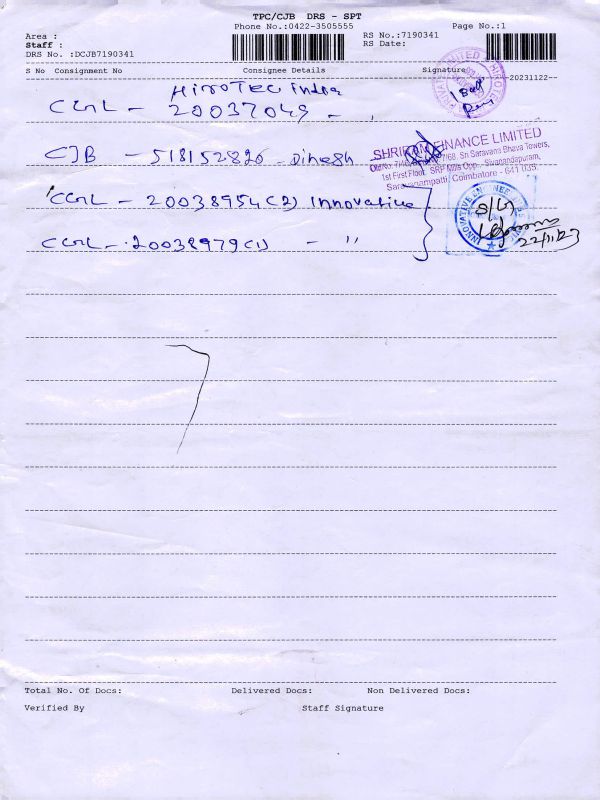 TPC/CJB DRS - SPT
Phone No.:0422-3505555 Page No.:1
Area :
Staff :
DRS No. :DCJB7190341
RS No.:7190341
RS Date:
S No Consignment No Consignee Details Signature
20231122
HiroTec india
20037049
CJB - 518152820 - Dinesh
SHRIRAM FINANCE LIMITED
1st First Floor, SRP Mills Opp., Sivanandapuram,
Saravanampatti, Coimbatore - 641 035.
20038954(2) Innovative
20038979(1) - "
22/11/23
Total No. Of Docs: Delivered Docs: Non Delivered Docs:
Verified By Staff Signature